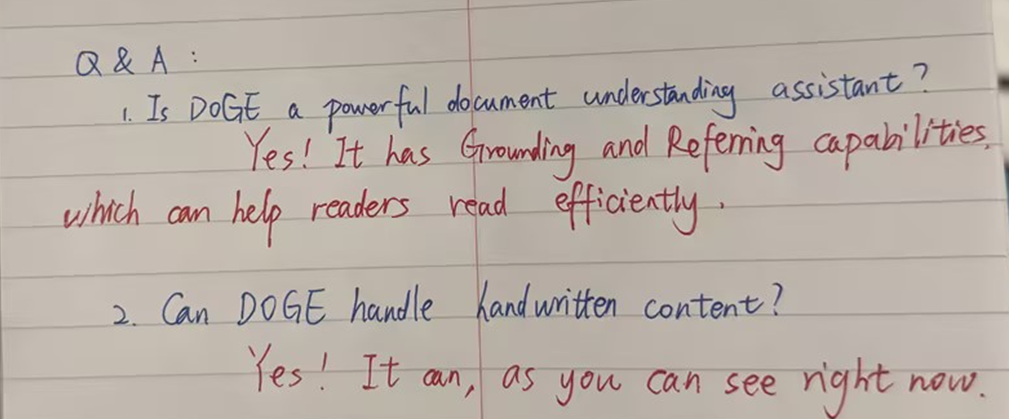 Q & A :
1. Is DOGE a powerful document understanding assistant?
Yes! It has Grounding and Referring capabilities,
which can help readers read efficiently.
2. Can DOGE handle handwritten content?
Yes! It can, as you can see right now.